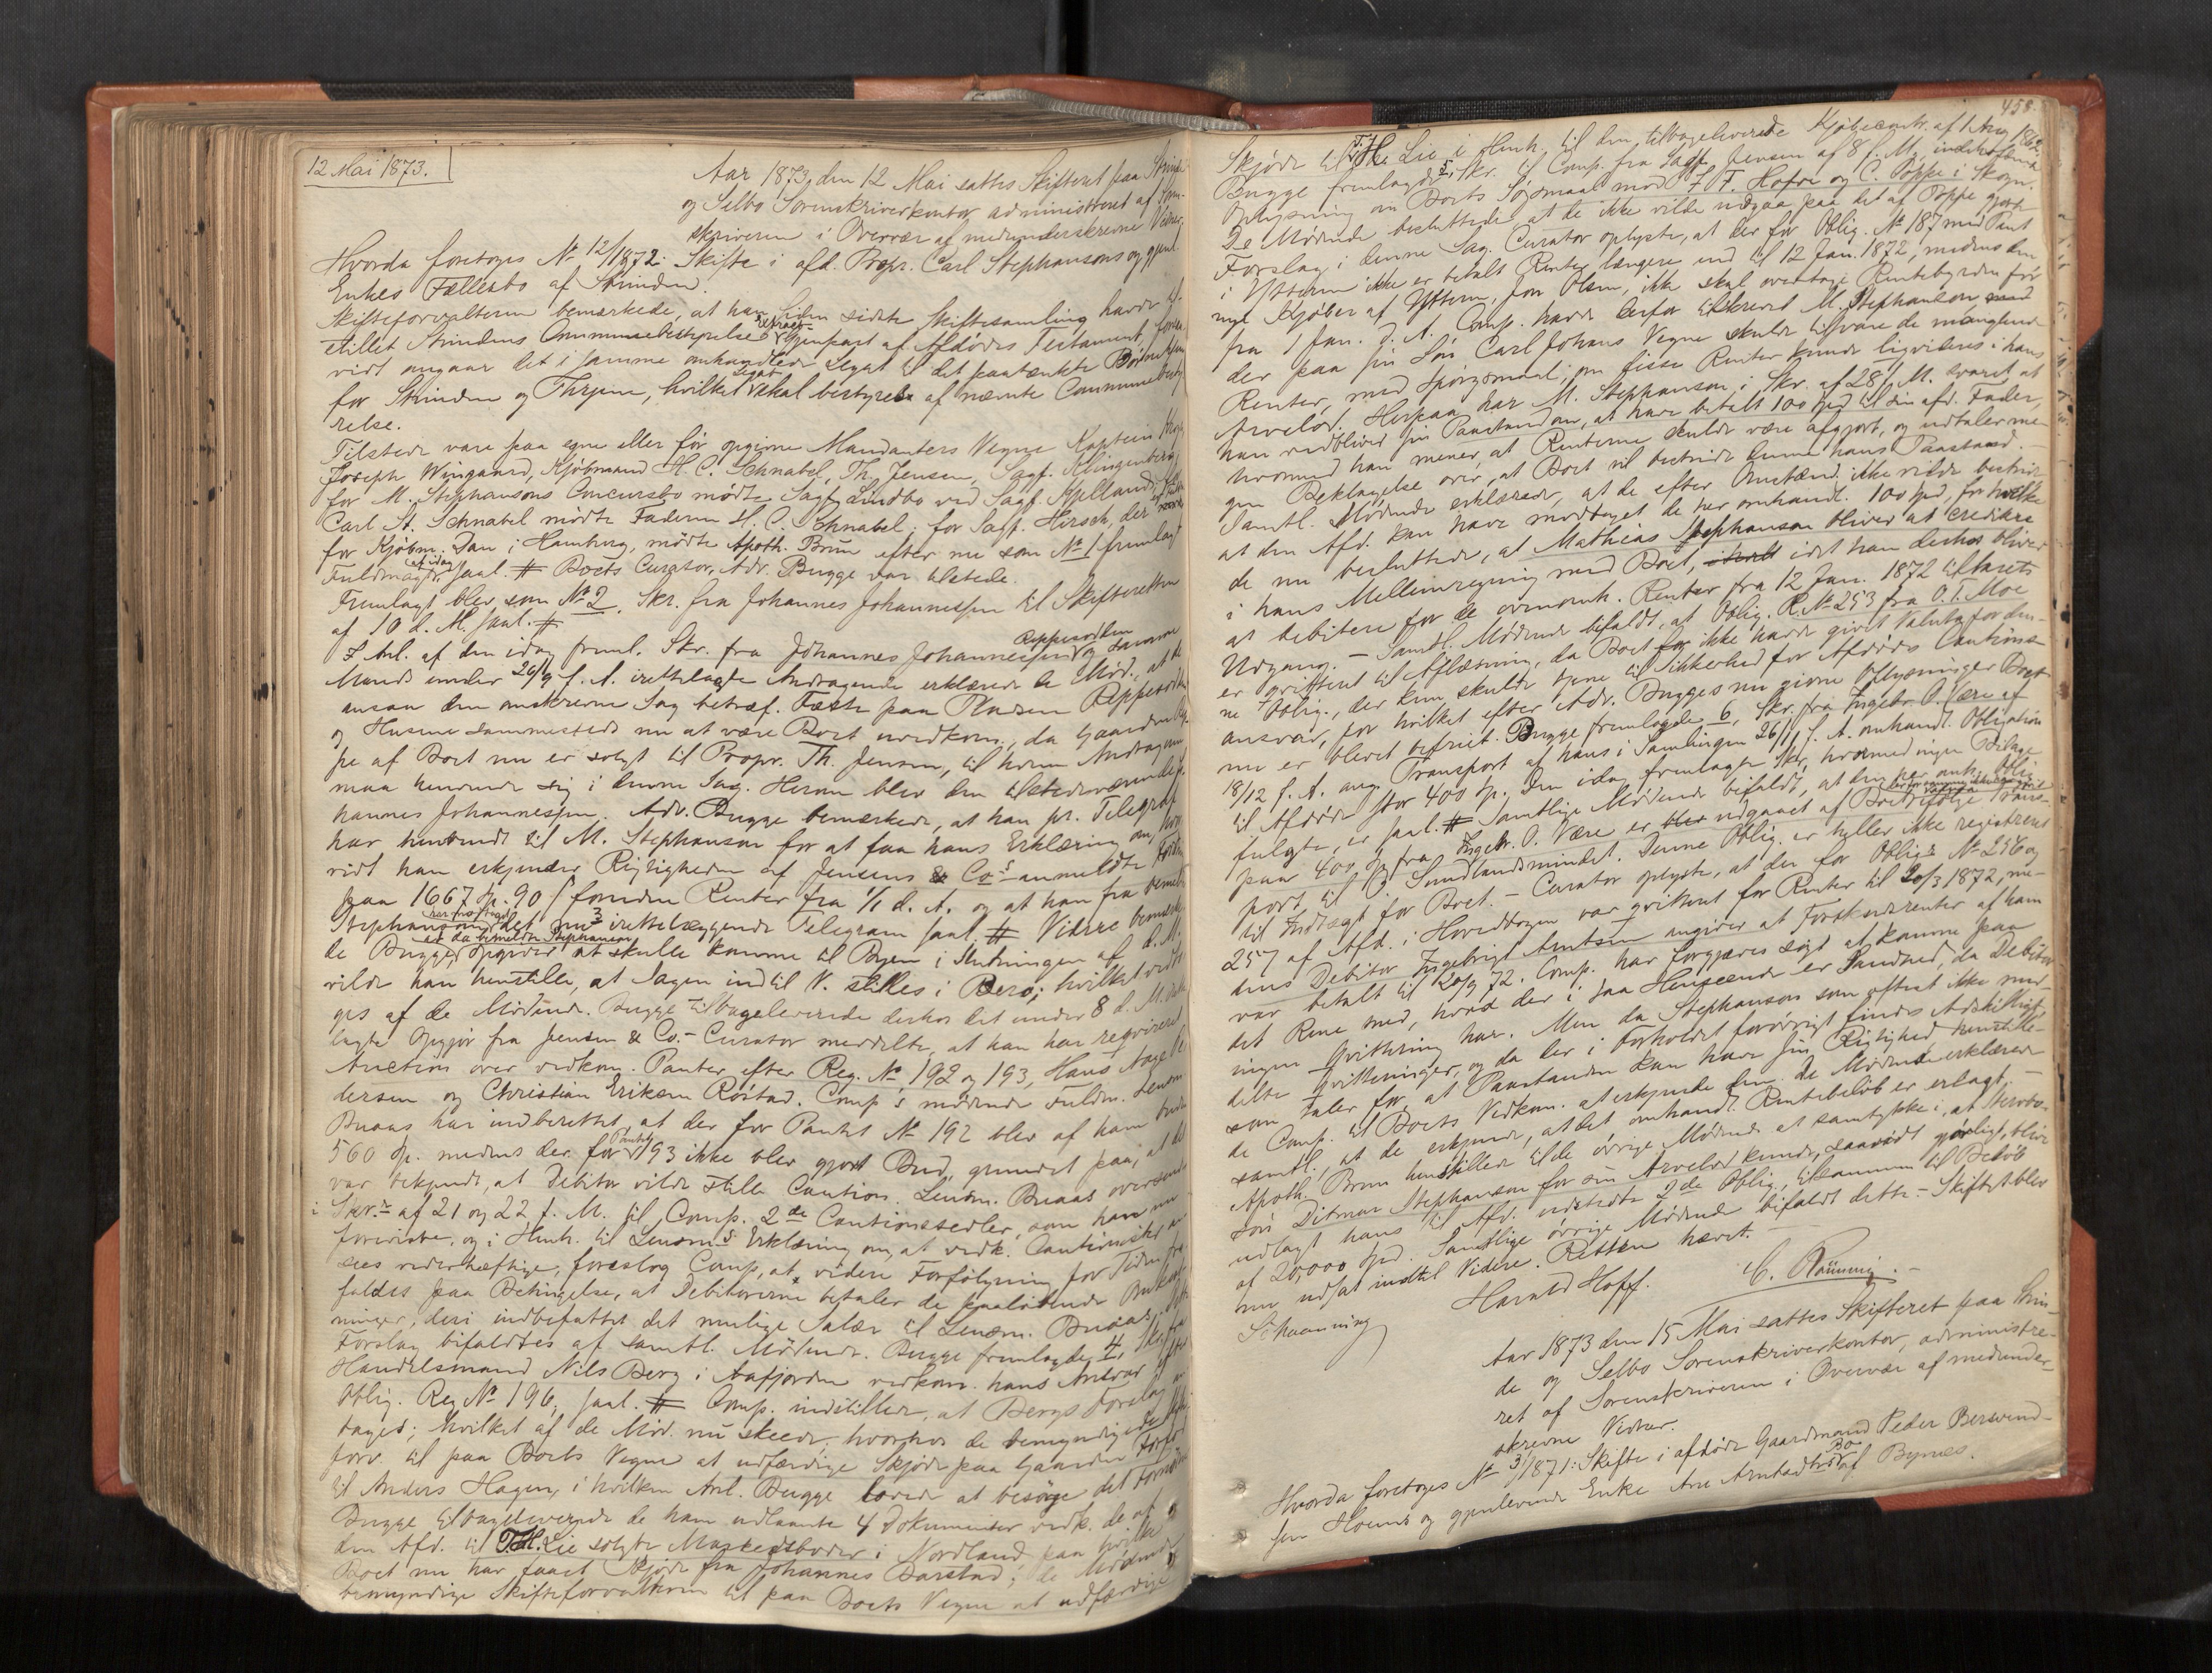 12 Mai 1873.
Aar 1873, den 12 Mai sattes Skifteret paa Strinde
og Selbo Sorenskriverkontor administreret af Soren-
skriveren i Overvær af medunderskrevne Vidner.
Hvorda foretoges No 12/1872: Skifte i afd. Propr. Carl Stephansons og gjenl.
Enkes Fællesbo af Strinden.
Skifteforvalteren bemærkede, at han siden sidste Skiftesamling havde til-
stillet Strindens Communebestyrelse Gjenpart af Afdødes Testament, forsaa-
vidt angaar det i samme omhandlede Legat til det paatænkte Børnehjem
for Strinden og Thrjem, hvilket Legat skal bestyres af nævnte Communebesty-
relse.
Tilstede vare paa egne eller før opgivne Mandanters Vegne Kaptein
Joseph Wingaard, Kjøbmand H. C. Schnabel, Th. Jensen, Sagf. Klingenberg,
for M. Stephansons Concursbo mødte Sagf. Lindbo ved Sagf. Kjelland,
Carl St. Schnabel mødte Faderen H. C. Schnabel; for Sagf. Hirsch, der
for Kjøbm. Dan i Hamburg, mødte Apoth. Brun efter nu som No 1 fremlagt
Fuldmagt af idag saal. # Boets Curator, Adv. Bugge var tilstede.
Fremlagt blev som No 2, Skr. fra Johannes Johannessen til Skifteretten
af 10 d. M. saal. #
I Anl. af den idag freml. Skr. fra Johannes Johannessen Reppesvolden og samme
Mands under 26/9 f. A. irettelagte Andragende erklærede de Mød., at de
ansaa den omskrevne Sag betræf. Fæste paa Pladsen Reppesvolden
og Husene sammesteds nu at være Boet uvedkom., da Gaarden Rep-
pe af Boet nu er solgt til Propr. Th. Jensen, til hvem Andrageren
maa henvende sig i denne Sag. Herom blev den tilstedeværende Jo-
hannes Johannessen. Adv. Bugge bemærkede, at han pr. Telegraf
har henvendt til M. Stephanson for at faa hans Erklæring om, hvor-
vidt han erkjender Rigtigheden af Jensens & Co.s anmeldte Fordring
paa 1667 Sp. 90 s foruden Renter fra 1/1 d. A. og at han fra bemeldte
Stephanson har modtaget det nu 3 irettelæggende Telegram saal. # Videre bemærke-
de Bugge, at da bemeldte Stephanson opgiver at skulle komme til Byen i Slutningen af d. M.
vilde han henstille, at Sagen indtil V. stilles i Bero; hvilket vedto-
ges af de Mødende. Bugge tilbageleverede derhos det under 8 d. M. frem-
lagte Opgjør fra Jensen & Co. – Curator meddelte, at han har reqvireret
Auction over vedkom. Panter efter Reg. No 192 og 193, Hans Aage Pe-
dersen og Christian Eriksen Røstad. Comp.s mødende Fuldm. Lensm.
Buaas har indberettet, at der for Pantet No 192 blev af ham budt
560 Sp. medens der for Pantet 193 ikke blev gjort Bud, grundet paa, at det
var bekjendt, at Debitor vilde stille Caution. Lensm. Buaas oversendte
i Skr.r af 21 og 22 f. M. til Comp. 2de Cautionssedler, som han nu
foreviste, og i Henh. til Lensm.s Erklæring om, at vedk. Cautionister an-
sees vederhæftige, foreslog Comp., at videre Forfølgning for Tiden fra-
faldes paa Betingelse, at Debitorerne betaler de paaløbende Omkost-
ninger, deri indbefattet det mulige Salær til Lensm. Buaas. Dette
Forslag bifaldtes af samtl. Mødende. Bugge fremlagde 4, Skr. fra
Handelsmand Nils Berg i Aafjorden vedkom. hans Ansvar efter
Oblig. Reg. No 196, saal. # Comp. indstillede, at Bergs Forslag an-
tages; hvilket af de Mød. nu skeede; hvorhos de bemyndigede Skifte-
forv. til paa Boets Vegne at udfærdige Skjøde paa Gaarden
til Anders Hagen, i hvilken Anl. Bugge lovede at besørge det fornødne
Bugge tilbageleverede de ham udlaante 4 Dokumenter vedk. de af
den Afd. til T. H. Lie solgte Markedsboder i Nordland, paa hvilke
Boet nu har faaet Skjøde fra Johannes Barstad; de Mødende
bemyndige Skifteforvalteren til paa Boets Vegne at udfærdige
458.
Skjøde til T. H. Lie i Henh. til den tilbageleverede Kjøbecontr. af 1 Aug 1862.
Bugge fremlagde 5, Skr. til Comp. fra Sagf. Jensen af 8 d. M., indeholdende
Oplysning om Boets Søgsmaal mod J. F. Hofre og C. Poppe i Skogn.
De Mødende besluttede at de ikke vilde indgaa paa det af Poppe gjorte
Forslag i denne Sag. Curator oplyste, at der for Oblig. No 187 med Pant
i Ytteren ikke er betalt Renter længere end til 12 Jan. 1872, medens den
nye Kjøber af Ytteren, Jon Olsen, ikke skal overtage Rentebyrden før
fra 1 Jan. d. A. Comp. havde derfor tilskrevet M. Stephanson
der paa sin Søn Carl Johans Vegne skulde tilsvare de manglende
Renter, med Spørgsmaal, om disse Renter kunde ligvideres i hans
Arvelod. Herpaa har M. Stephanson i Skr. af 28 f. M. svaret, at
han vedbliver sin Paastand om, at have betalt 100 Spd til sin afd. Fader,
hvormed han mener, at Renterne skulde være afgjort, og udtaler me-
gen Beklagelse over, at Boet vil bestride denne hans Paastand.
Samtl. Mødende erklærede, at de efter Omstænd. ikke vilde bestride
at den Afd. kan have modtaget de her omhandl. 100 Spd, for hvilke
de nu besluttede, at Mathias Stephanson bliver at creditere
i hans Mellemregning med Boet, idet han derhos bliver
at debitere for de ovenomh. Renter fra 12 Jan. 1872 til Aarets
Udgang. – Samtl. Mødende bifaldt, at Oblig. R. No 253 fra O. T. Moe
er qvitteret til Aflæsning, da Boet ikke havde givet Valuta for den-
ne Oblig., der kun skulde tjene til Sikkerhed for Afdødes Cautions-
ansvar, for hvilket efter Adv. Bugges nu givne Oplysninger Boet
nu er blevet befriet. Bugge fremlagde 6, Skr. fra Ingebr. O. Være af
18/12 f. A. ang. Transport af hans i Samlingen 26/11 f. A. omhandl. Obligation
til Afdøde stor 400 Sp. Den idag fremlagte Skr., hvormed ingen Bilage
fulgte, er saal. # Samtlige Mødende bifaldt, at den her omh. Oblig.
paa 400 Sp fra Ingebr. O. Være er udgaaet af Boet ifølge Trans-
port til B. Sundlandsmindet. Denne Oblig. er heller ikke registreret
til Indtægt for Boet. – Curator oplyste, at der for Oblig.r No 256 og
257 af Afd. i Hovedbogen var qvitteret for Renter til 20/3 1872, me-
dens Debitor Ingebrigt Arntsen angiver at Forskudsrenter af ham
var betalt til 20/9 72. Comp. har forgjæves søgt at komme paa
det Rene med, hvad der i saa Henseende er Sandhed, da Debitor
ingen Qvittering har. Men da Stephanson som oftest ikke med-
delte Qvitteringer, og da der i Forholdet forøvrigt findes Adskilligt,
som taler for, at Paastanden kan have sin Rigtighed, henstille-
de Comp. til Boets Vedkom. at erkjende den. De Mødende erklærede
samtl., at de erkjende, at det omhandl. Rentebeløb er erlagt. –
Apoth. Brun henstillede til de øvrige Mødende at samtykke i, at Sterbo-
søn Ditmar Stephanson for sin Arvelod kunde, saavidt gjørligt, blive
udlagt hans til Afd. udstedte 2de Oblig., tilsammen til Beløb
af 20,000 Spd. Samtlige øvrige Mødende bifaldt dette. – Skiftet blev
nu udsat indtil Videre. Retten hævet.
Harald Hoff. C. Rønning. –
Schaanning
Aar 1873 den 15 Mai sattes Skifteret paa Strin-
de og Selbo Sorenskriverkontor, administre-
ret af Sorenskriveren i Overvær af medunder-
skrevne Vidner.
Hvorda foretoges No 3/1871: Skifte i afdøde Gaardmand Peder Bersvend-
sen Hoems og gjenlevende Enke Ane Arntsdtrs Bo af Bynes.